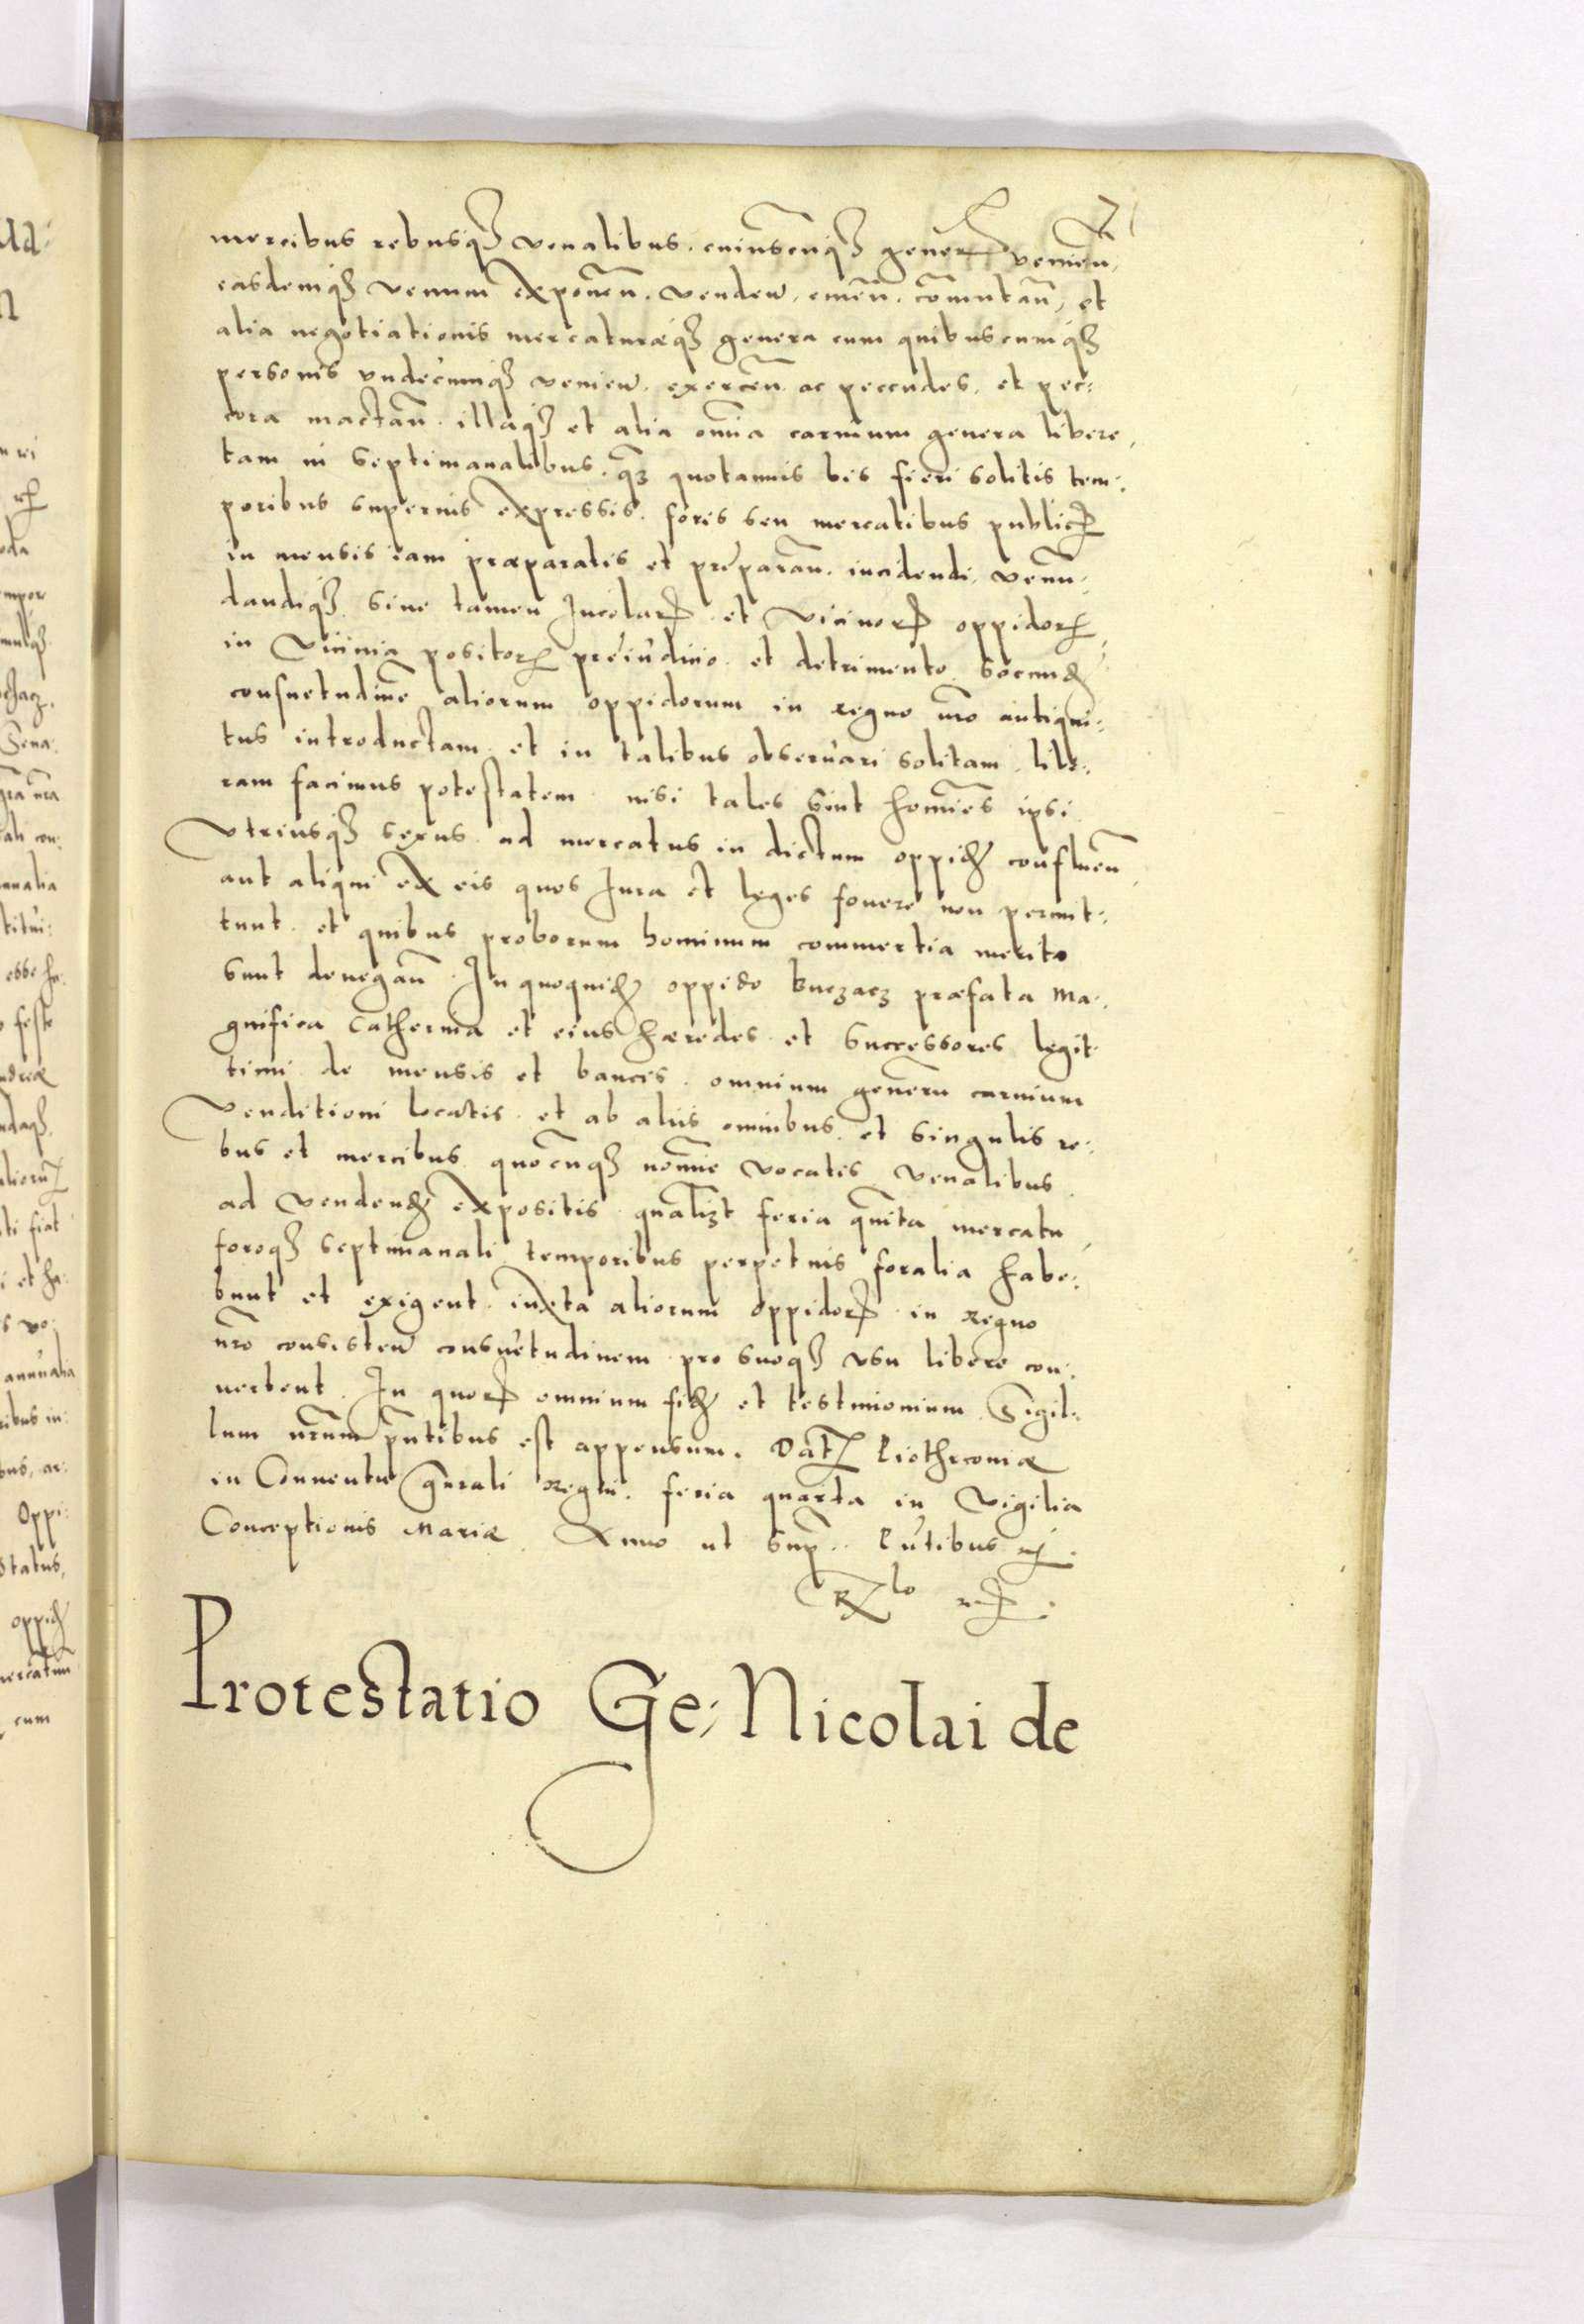 mercibus rebusq₃ venalibus. cuiuscunq₃ gener̃ venień,
easdemq₃ venum exponeñ. venden̄, emeñ. com̄utañ, et
alia negotiationis mercaturæq₃ genera cum quibuscumq₃
personis vndecunq₃ venien̄. exerceñ. ac peccudes. et pec:
cora mactañ. illaq₃ et alia om̄ia carnium genera libere,
tam in septimanalibus. q̃₃ quotannis bis fieri solitis tem:
poribus supernis expressis. foris seu mercatibus publicꝭ
in mensis iam præparatis et preparañ. incidendi, venun:
dandiq₃. Sine tamen Incolarꝝ et Vicinorꝝ oppidorꝝ,
in Vicinia positorꝝ preiudicio et detrimento. Secund̃
consuetudinē aliorum oppidorum in regno nr̃o antiqui:
tus introductam et in talibus obseruari solitam. libe:
ram facimus potestatem. nisi tales sint homīes ipsi
vtriusq₃ sexus ad mercatus in dictum oppid̃ confluen̄,
aut aliqui ex eis quos Iura et leges fouere non permit:
tunt. et quibus proborum hominum commertia merito
sunt denegañ. In quoquid̃ oppido Buczacz præfata Ma:
gnifica Catherina et eius hæredes et successores legit
timi de mensis et bancis. omnium generū carnium
Venditioni locatis. et ab aliis omnibus. et singulis re:
bus et mercibus quocunq₃ nomīe vocatis venalibus
ad vendend̃ expositis quali₃t feria quīta mercatu,
foroq₃ septimanali temporibus perpetuis foralia habe:
bunt et exigent. iuxta aliorum oppidorꝝ in regno
nr̃o consisten̄ consuetudinem pro suoq₃ vsu libere con:
uertent. In quorꝝ omnium fid̃ et testimonium Sigil:
lum nr̃um p̃ntibus est appensum. Datꝭ Piotrcouiæ
in Conuentu gñrali Regni. feria quarta in Vigilia
Conceptionis Mariæ. Anno ut sup̃.. P̃ntibus
Protestatio Ge: Nicolai de